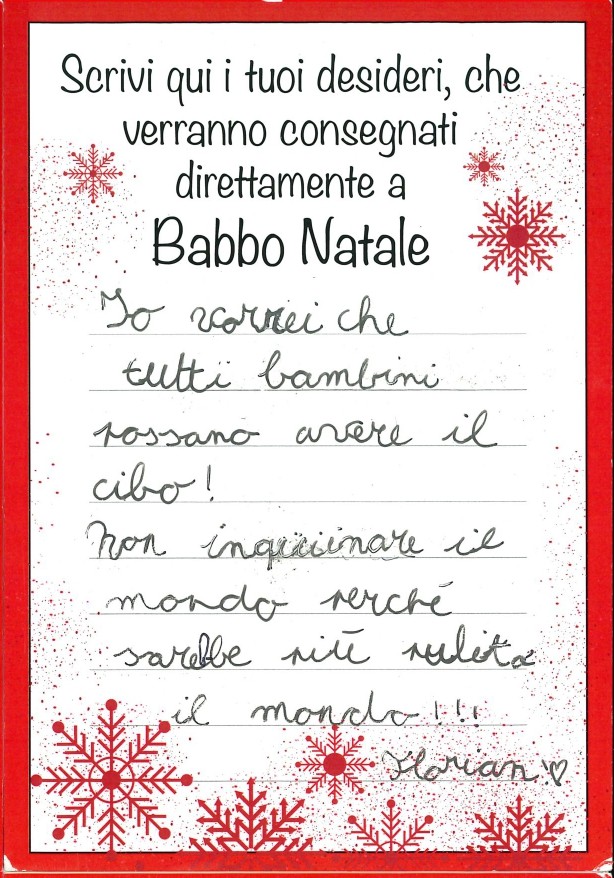 Scrivi qui i tuoi desideri, che
verranno consegnati
direttamente a
Babbo Natale
Io vorrei che
tutti bambini
possano avere il
cibo!
Non inquiinare il
mondo perché
sarebbe più pulita
il mondo!!!
Florian